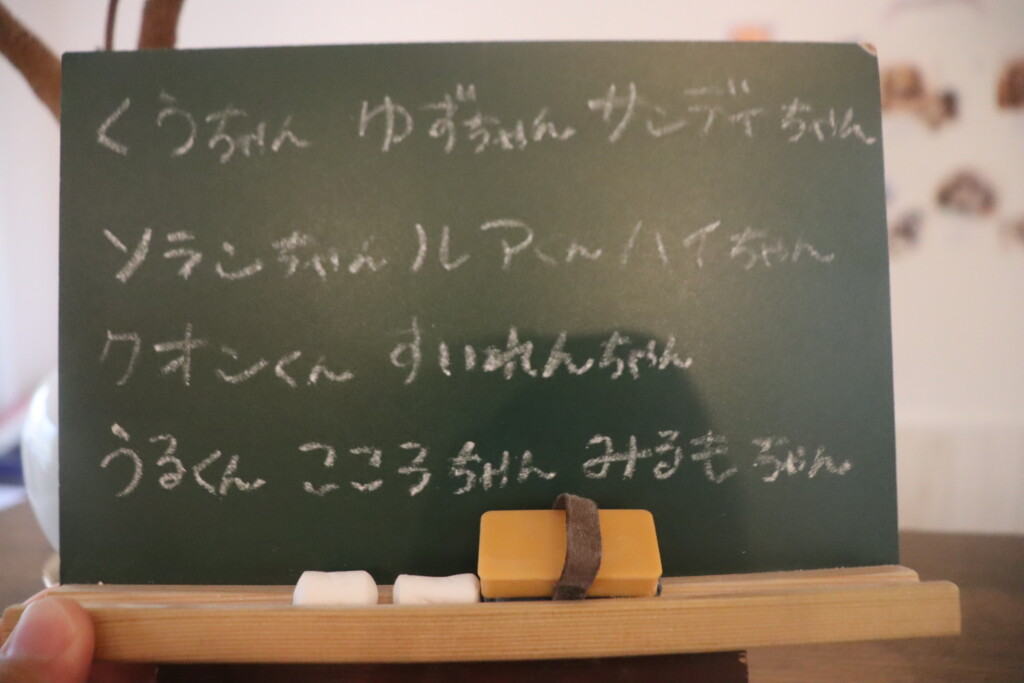 くうちゃん ゆずちゃん サンディちゃん
ソランちゃん ルアくん ハイちゃん
クオンくん すいれんちゃん
うるくん こころちゃん みるもちゃん